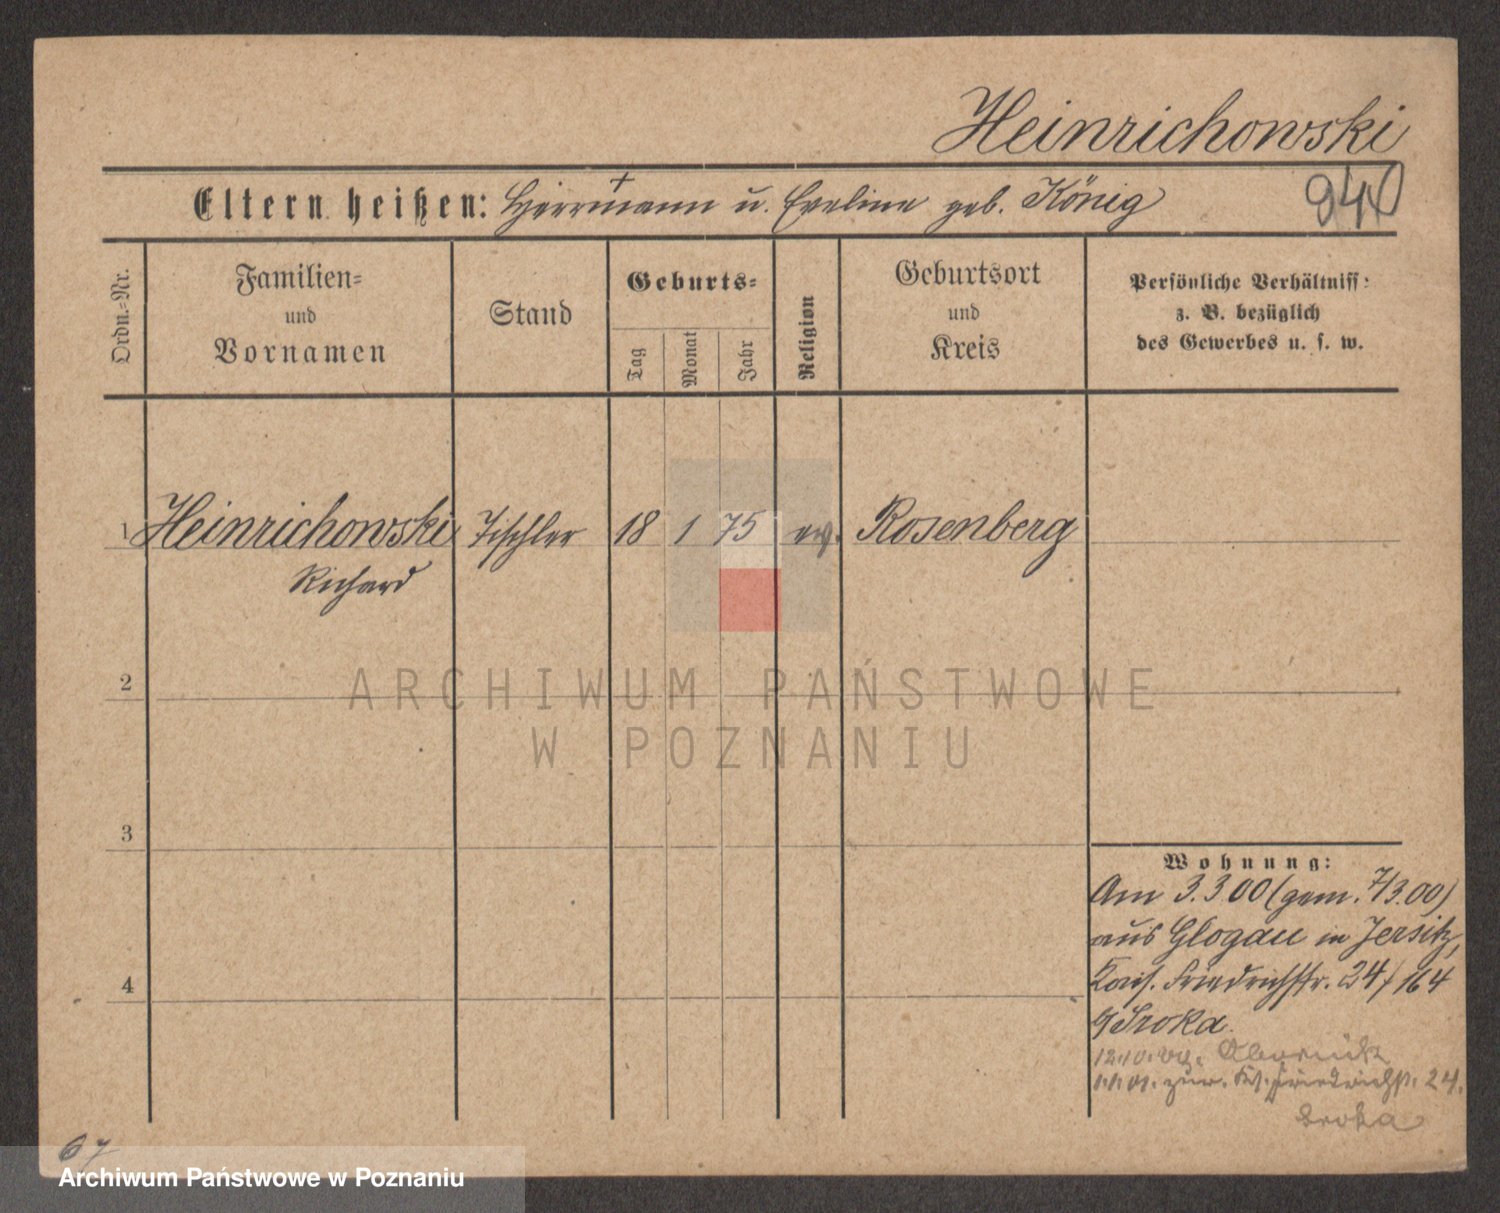 Heinrichowski
Eltern heißen: Herrmann u. Eveline geb. König
940
Ordn.-Nr.
Familien- und Vornamen
Stand
Geburts-
Tag
Monat
Jahr
Religion
Geburtsort und Kreis
Persönliche Verhältniss:
z. B. bezüglich
des Gewerbes u. s. w.
1 Heinrichowski Tischler 18 1 75 ev. Rosenberg
Richard
2
3
4
ARCHIWUM PAŃSTWOWE
W POZNANIU
Wohnung:
Am 3.3.00 (gem. 7/3.00)
aus Glogau in Jersitz,
Kais. Friedrichstr. 24/164
b/ Sroka.
Obornik
zur. Friedrichst. 24.
Sroka
67
Archiwum Państwowe w Poznaniu